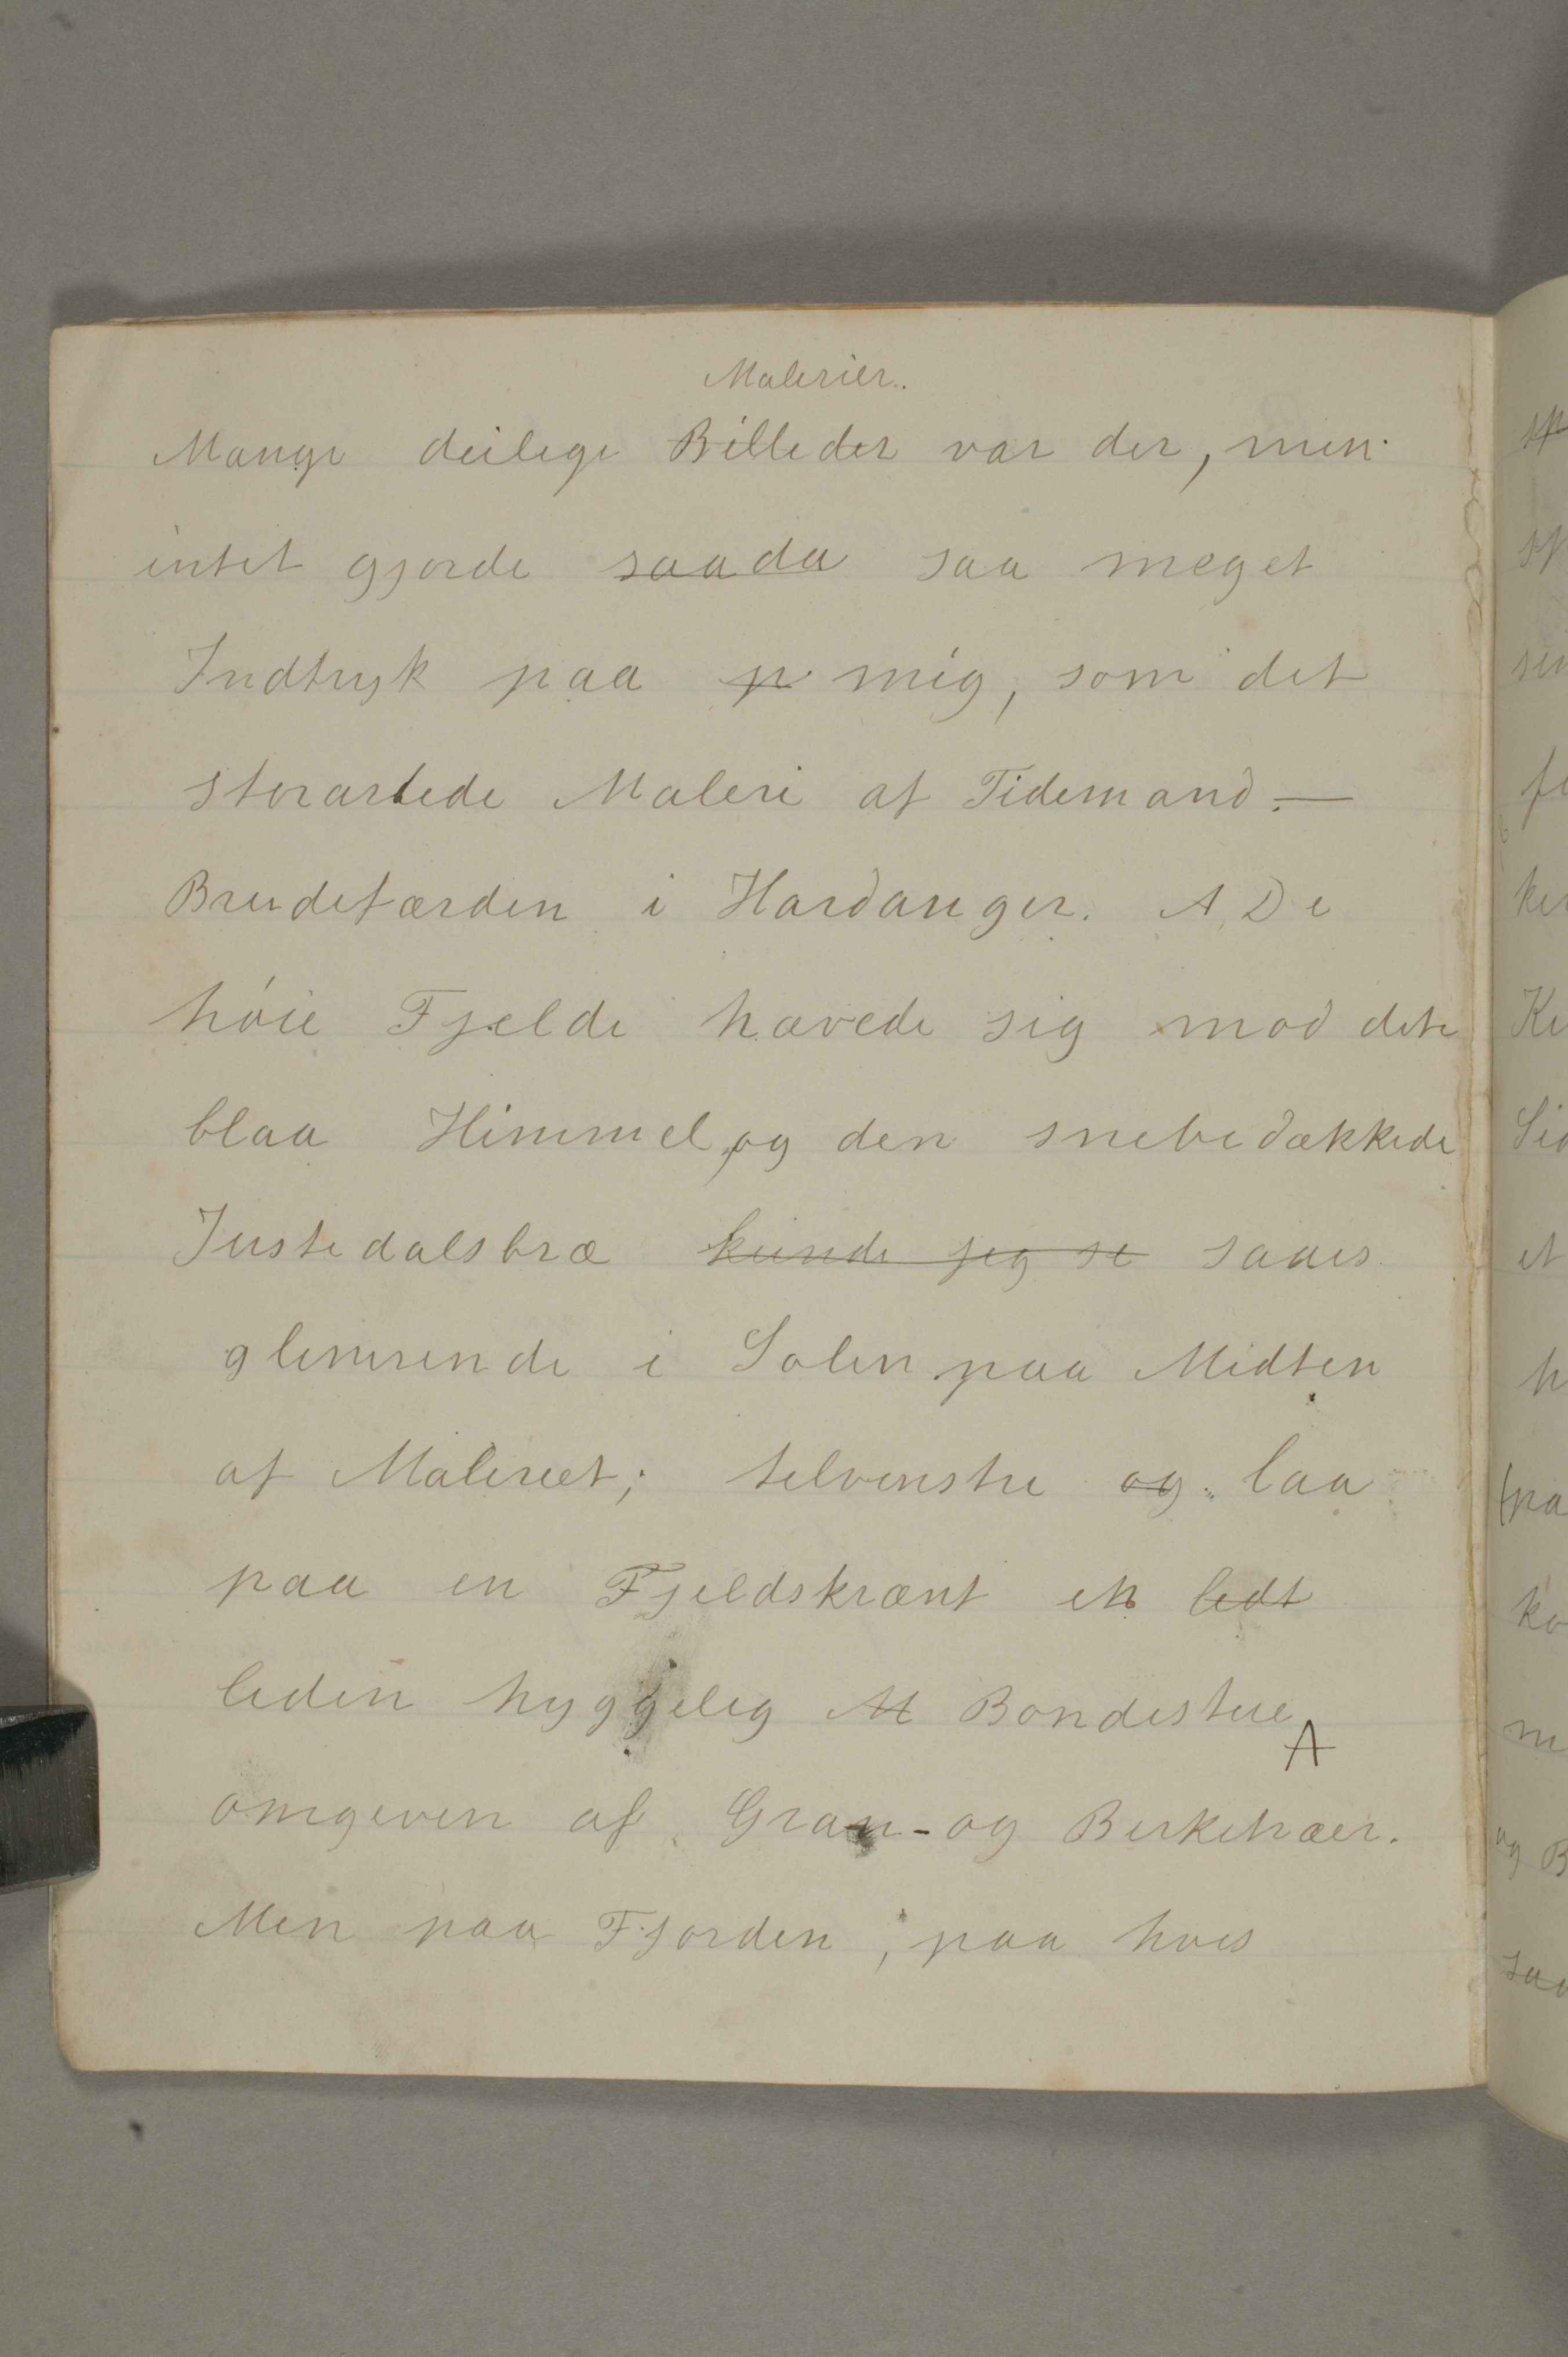 Malerier.
Mange deilige Billeder var der, men
intet gjorde saada saa meget
Indtryk paa p mig, som det
storartede Maleri af Tidemand. —
Brudefærden i Hardanger. A De
høie Fjelde hævede sig mod det
blaa Himmel, og den snebedækkede
Justedalsbræ kunde jeg se saaes
glimrende i Solen paa Midten
af Maleriet; tilvenstre og laa
paa en Fjeldskrænt en lidt
liden hyggelig M Bondestue
omgeven af Gran- og Birketræer.
Men paa Fjorden, paa hvis